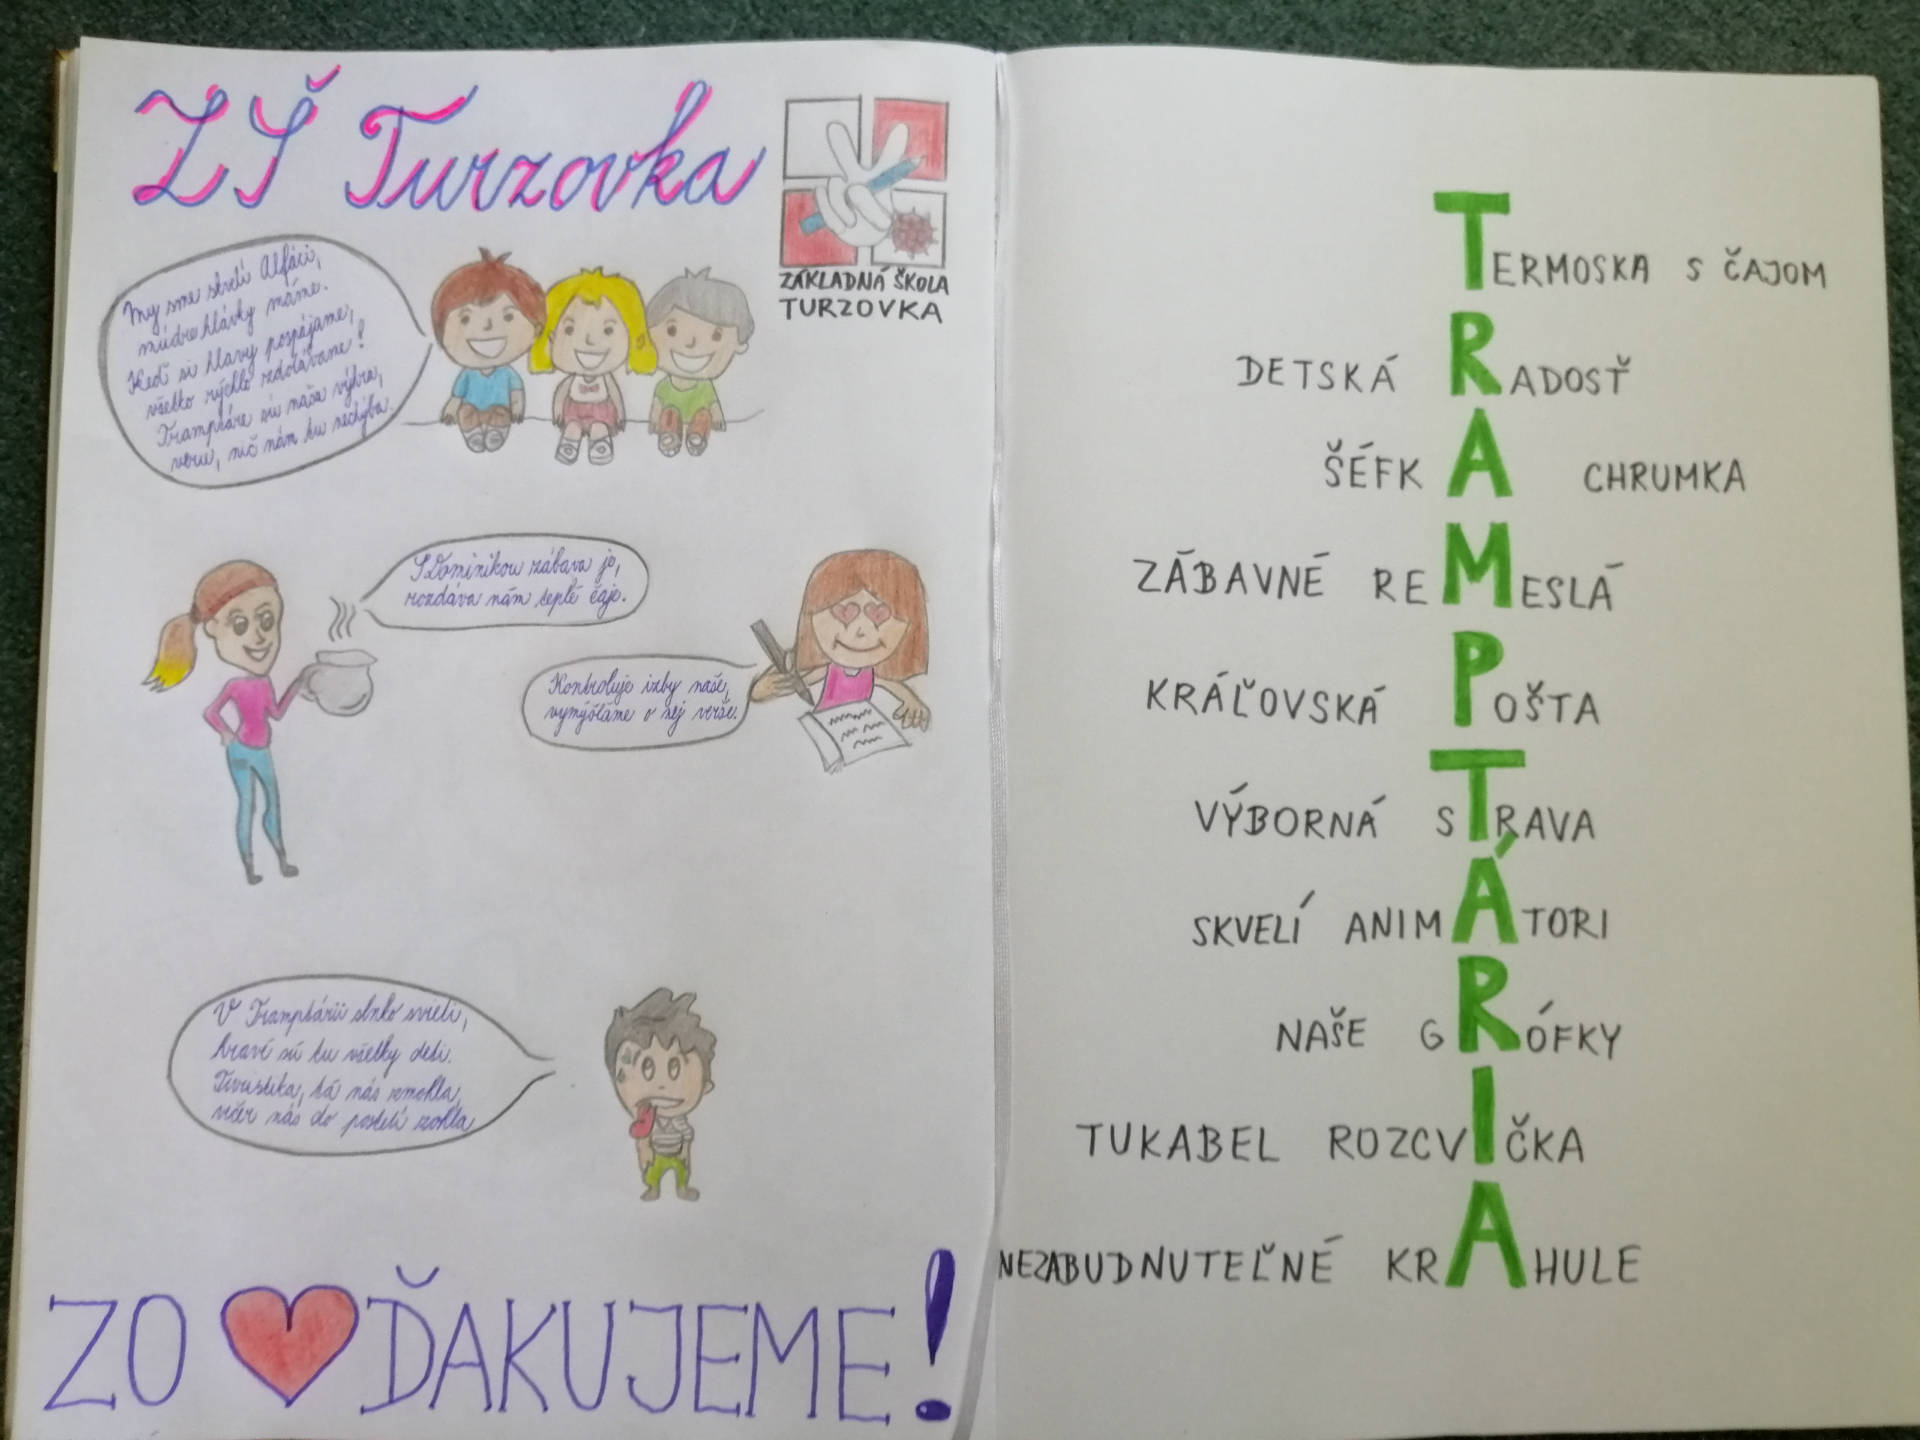 ZŠ Turzovka
ZÁKLADNÁ ŠKOLA
TURZOVKA
My sme skvelí Alfáci,
múdre hlávky máme.
Keď si hlavy pospájame,
všetko rýchlo zdolávame!
Tramptárie sú naša výhra,
veru, nič nám tu nechýba.
S Dominikou zábava je,
rozdáva nám teplé čaje.
Kontroluje izby naše,
vymýšľame o nej verše.
V Tramptárii slnko svieti,
hravé sú tu všetky deti.
Turistika, tá nás zmohla,
večer nás do postelí
ZO ĎAKUJEME!
TERMOSKA S ČAJOM
DETSKÁ RADOSŤ
ŠÉFKA CHRUMKA
ZÁBAVNÉ REMESLÁ
KRÁĽOVSKÁ POŠTA
VÝBORNÁ STRAVA
SKVELÍ ANIMÁTORI
NAŠE GRÓFKY
TUKABEL ROZCVIČKA
NEZABUDNUTEĽNÉ KRAHULE